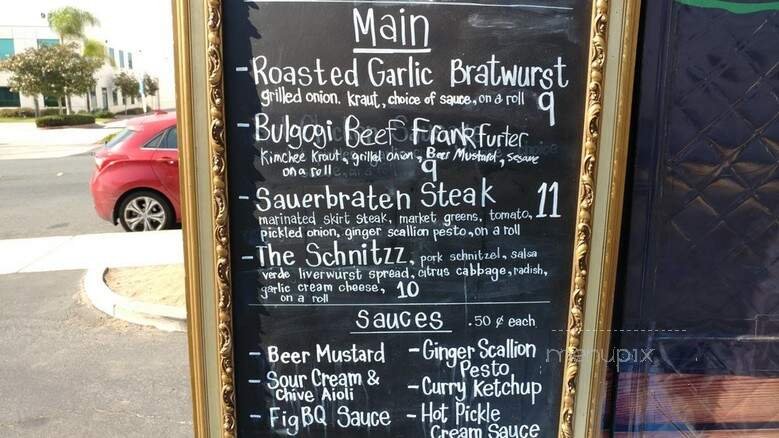 Main
- Roasted Garlic Bratwurst
grilled onion, kraut, choice of sauce, on a roll 9
- Bulgogi Beef Frankfurter
Kimchee Kraut, grilled onion, Beer Mustard, sesame
on a roll 9
- Sauerbraten Steak 11
marinated skirt steak, market greens, tomato,
pickled onion, ginger scallion pesto, on a roll
- The Schnitzz, pork schnitzel, salsa
verde liverwurst spread, citrus cabbage, radish,
garlic cream cheese, 10
on a roll
Sauces .50 ¢ each
- Beer Mustard
- Sour Cream &
Chive Aioli
- FigBQ Sauce
- Ginger Scallion
Pesto
- Curry Ketchup
- Hot Pickle
Cream Sauce
menupix